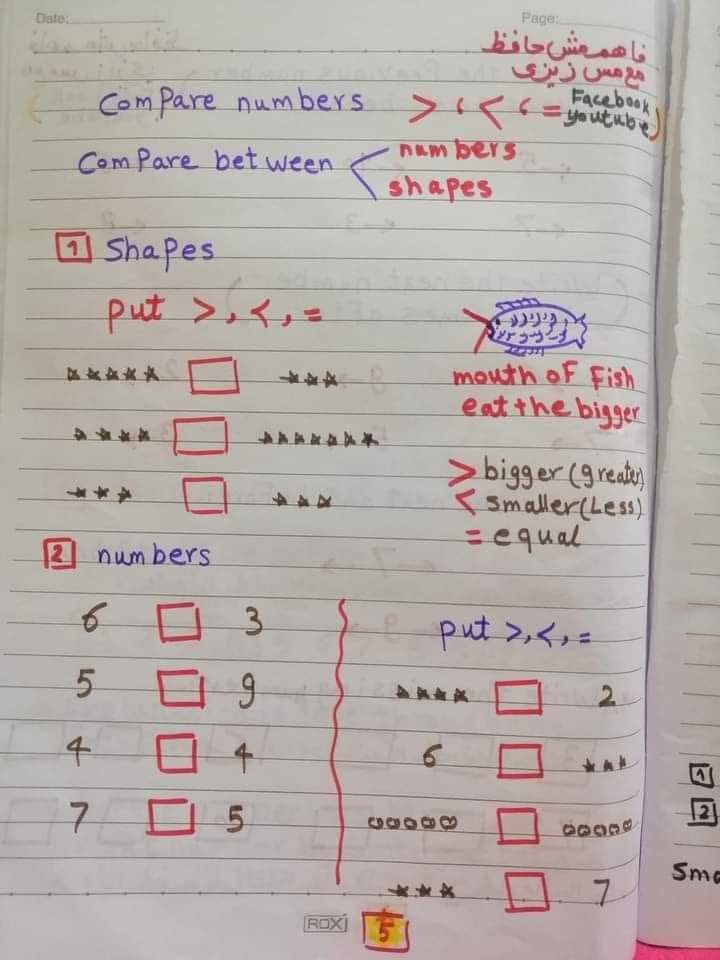 Date: Page:
فاهم مش حافظ
مع مس زيزى
Compare numbers > ، < ، = Facebook
youtube
Compare between numbers
shapes
1 Shapes
put >, <, =
mouth of Fish
eat the bigger
> bigger (greater)
< smaller (Less)
= equal
2 numbers
6 3
5 9
4 4
7 5
put >, <, =
2
6
7
ROXI
5
1
2
Sma